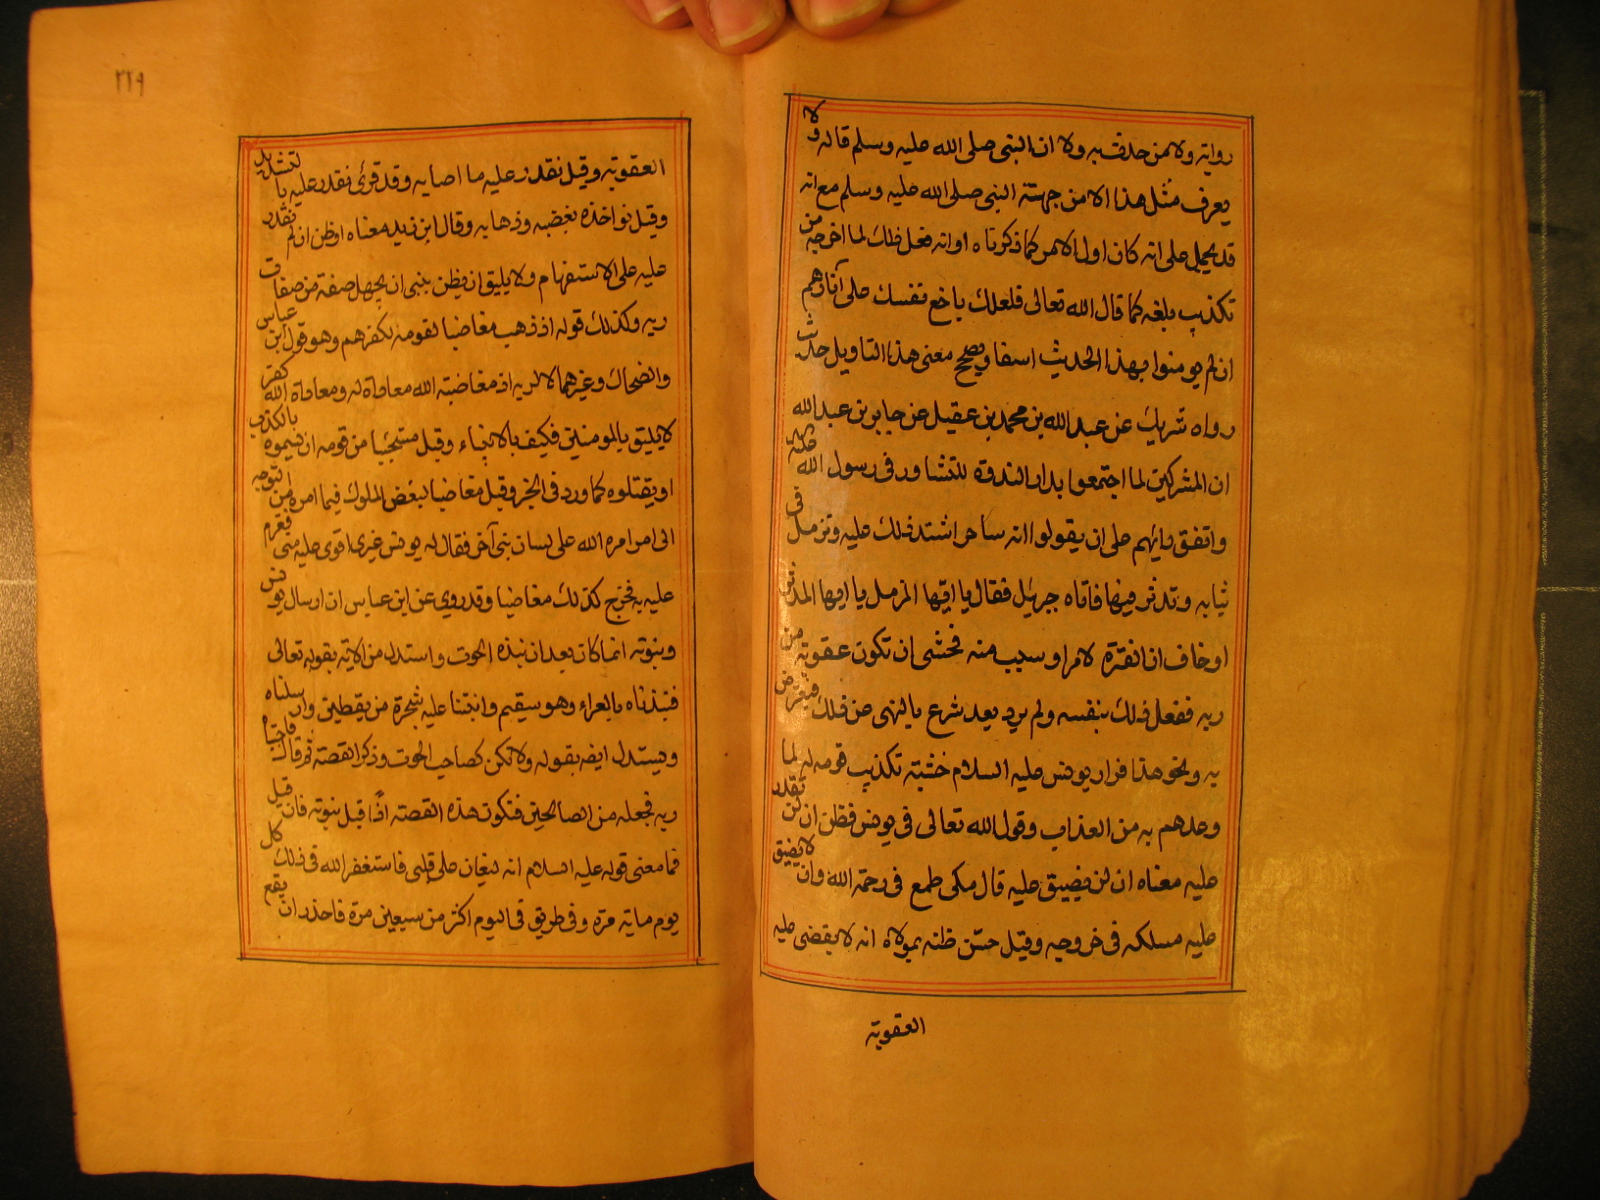 رواته ولا من حدث به ولا ان النبي صلى الله عليه وسلم قاله ولا
يعرف مثل هذا الا من جهته النبي صلى الله عليه وسلم مع انه
قد يحمل على انه كان اول الامر كما ذكرناه او انه فعل ذلك لما اخرجه من
تكذيب بلغه كما قال الله تعالى فلعلك باخع نفسك على آثارهم
ان لم يومنوا بهذا الحديث اسفا ويصحح معنى هذا التاويل حديث
رواه شريك عن عبد الله بن محمد بن عقيل عن جابر بن عبد الله
ان المشركين لما اجتمعوا بدار الندوة للتشاور في رسول الله
واتفق رايهم على ان يقولوا انه ساحر اشتد ذلك عليه وتزمل في
ثيابه وتدثر فيها فاتاه جبريل فقال يا ايها المزمل يا ايها المدثر
او خاف ان الفترة لامر او سبب منه فخشى ان تكون عقوبة من
ربه ففعل ذلك بنفسه ولم يرد بعد شرع بالنهى عن ذلك فيعترض
به ونحو هذا فرار يونس عليه السلام خشية تكذيب قومه له لما
وعدهم به من العذاب وقول الله تعالى في يونس فظن ان لن نقدر
عليه معناه ان لن نضيق عليه قال مكى طمع في رحمة الله وان لا يضيق
عليه مسلكه في خروجه وقيل حسن ظنه بمولاه انه لا يقضى عليه
العقوبة
٢٢٩
العقوبة وقيل نقدر عليه ما اصابه وقد قرئ نقدر عليه بالتشديد
وقيل نواخذه بغضبه وذهابه وقال ابن زيد معناه اوظن ان لم نقدر
عليه على الاستفهام ولا يليق ان يظن بنبي ان يجهل صفة من صفات
ربه وكذلك قوله اذ ذهب مغاضبا لقومه لكفرهم وهو قول ابن عباس
والضحاك وغيرهما لا لربه اذ مغاضبة الله معاداة له ومعاداة الله كفر
لا يليق بالمومنين فكيف بالانبياء وقيل مستحيا من قومه ان يسموه بالكذب
او يقتلوه كما ورد في الخبر وقيل مغاضبا لبعض الملوك فيما امره من التوجه
الى امر امره الله على لسان نبي آخر فقال له يونس غيري اقوى عليه منى فعزم
عليه به فخرج كذلك مغاضبا وقد روي عن ابن عباس ان ارسال يونس
ونبوته انما كان بعد ان نبذه الحوت واستدل من الاية بقوله تعالى
فنبذناه بالعراء وهو سقيم وانبتنا عليه شجرة من يقطين وارسلناه
ويستدل ايضه بقوله ولا تكن كصاحب الحوت وذكر القصة ثم قال فاجتباه
ربه فجعله من الصالحين فتكون هذه القصة اذًا قبل نبوته فان قيل
فما معنى قوله عليه السلام انه ليغان على قلبى فاستغفر الله في ذلك كل
يوم مائة مرة وفي طريق في اليوم اكثر من سبعين مرة فاحذر ان يقع